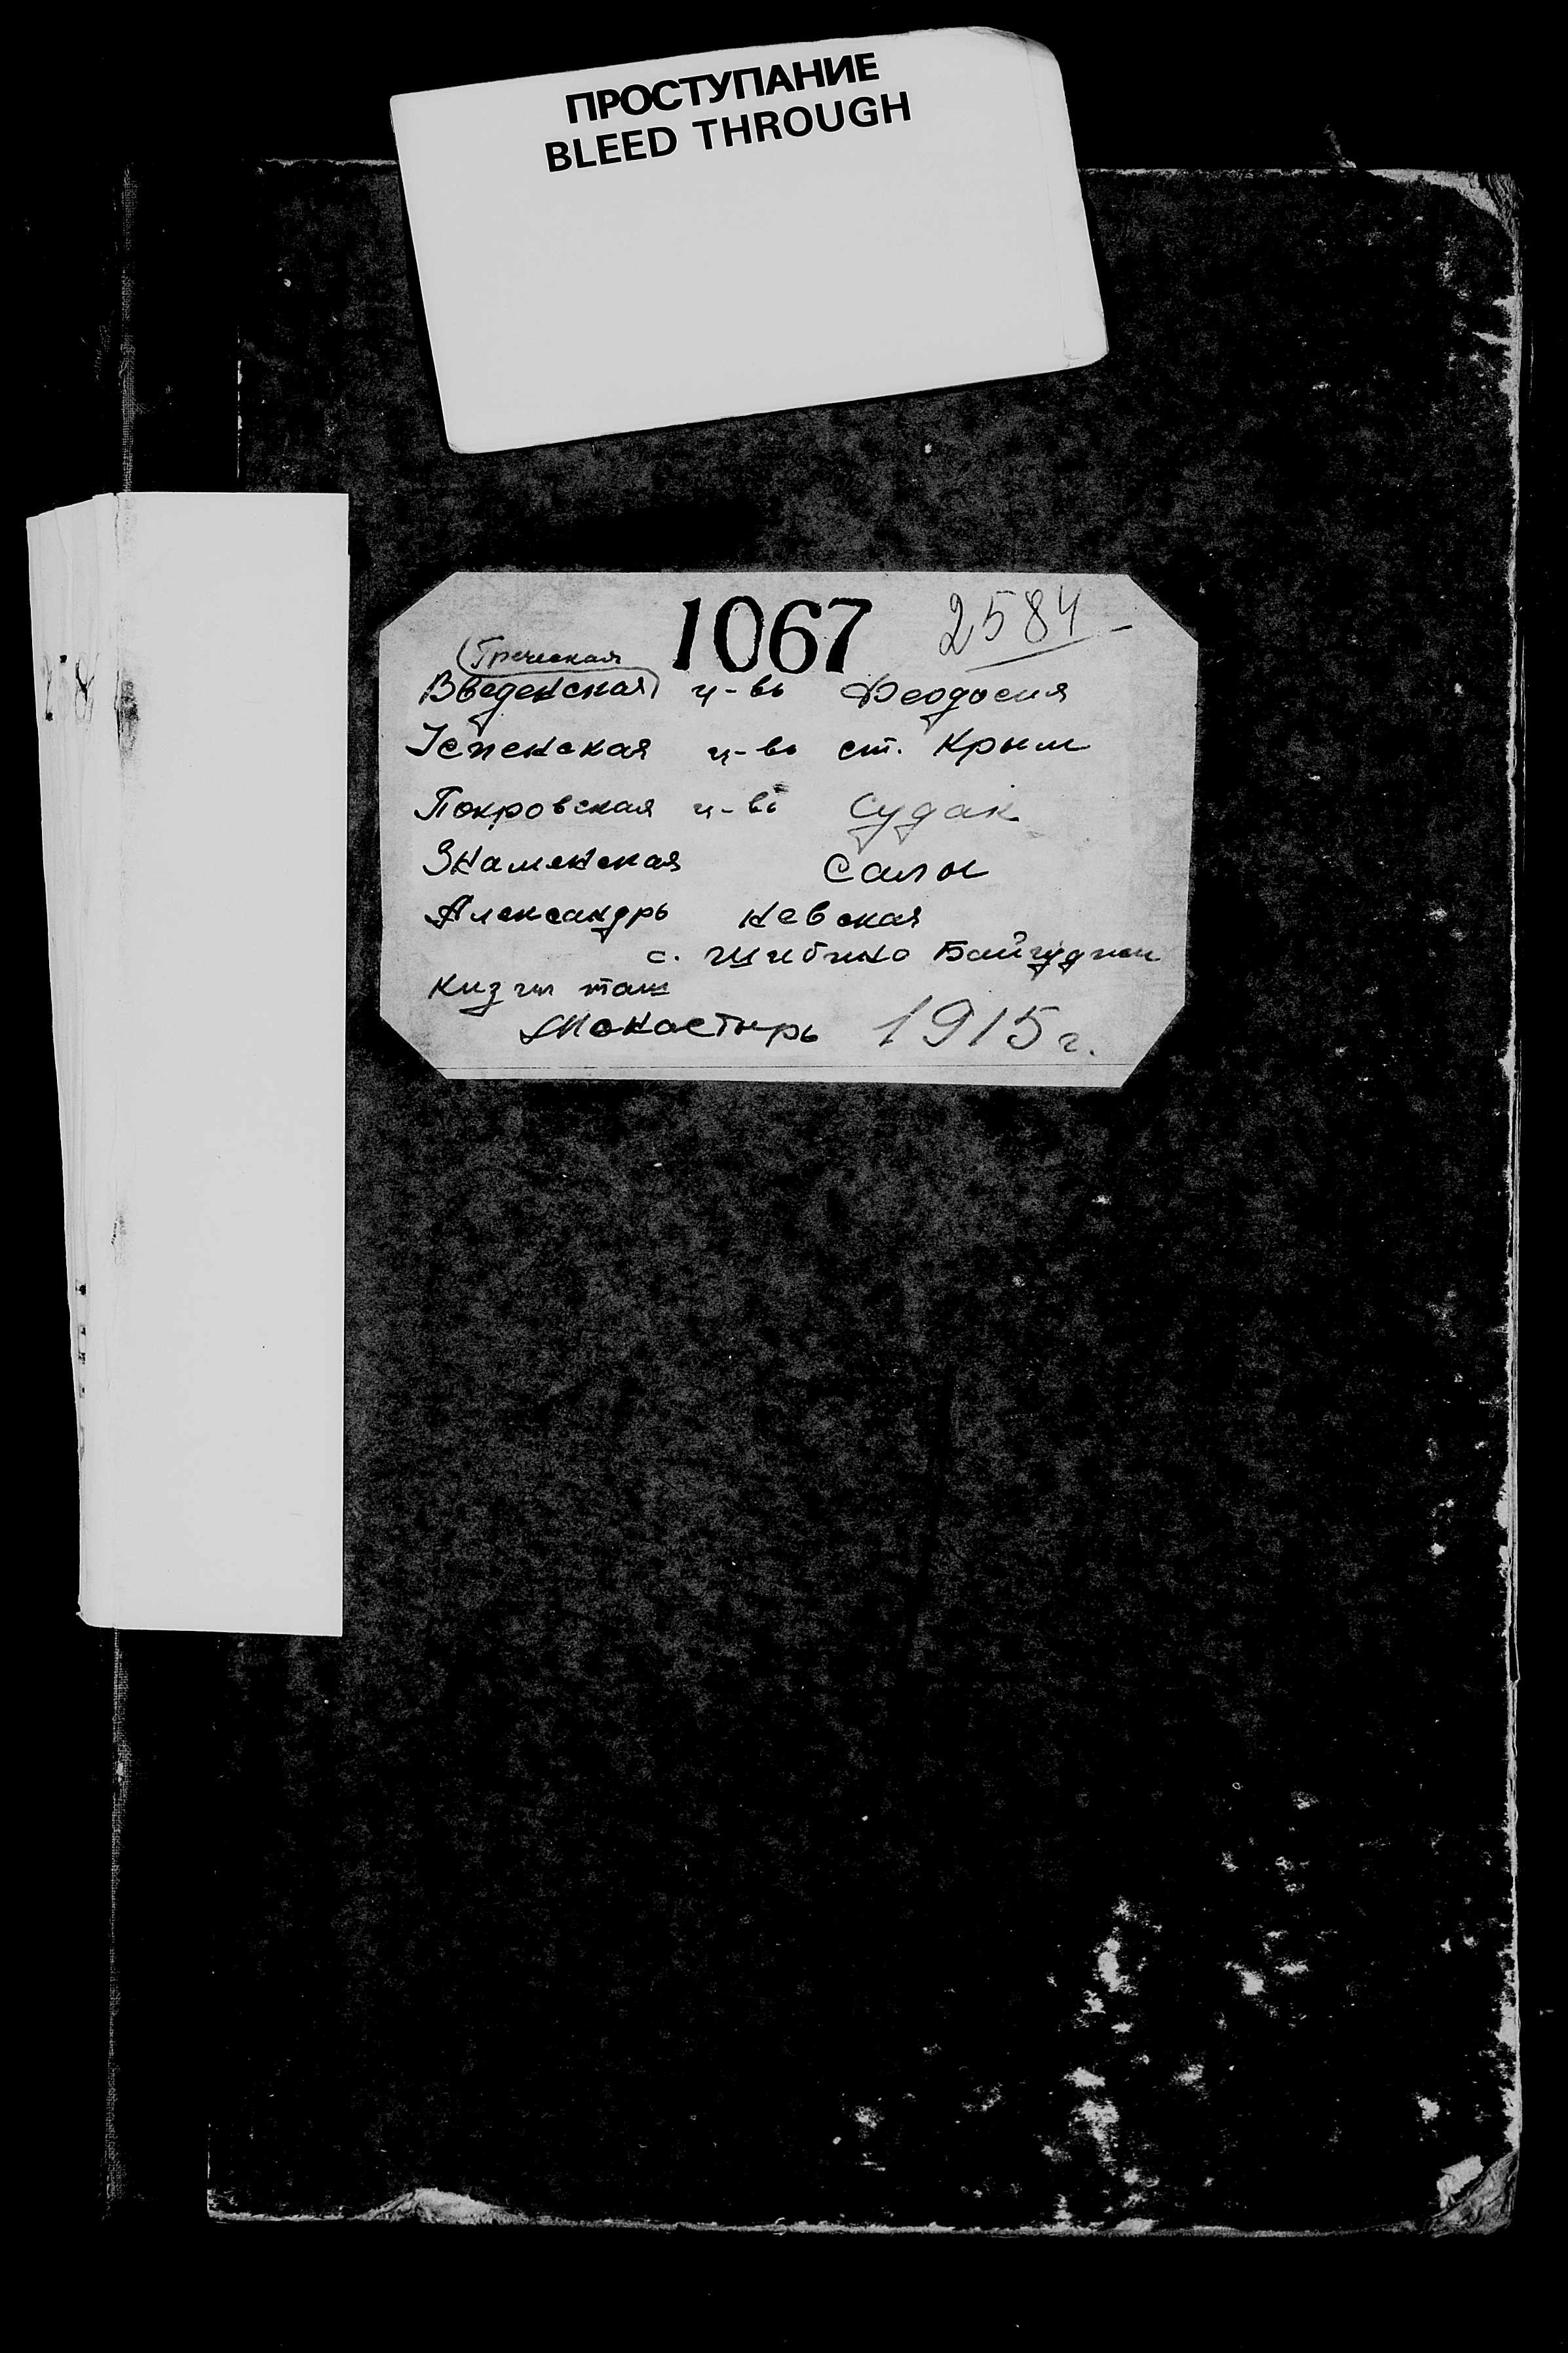 ПРОСТУПАНИЕ
BLEED THROUGH
1067 2584
(Греческая)
Введенская ц-вь Феодосия
Успенская ц-вь ст. Крым
Покровская ц-вь Судак
Знаменская Салы
Александрь Невская
с. Шибино
Кизил таш
Монастырь 1915 г.